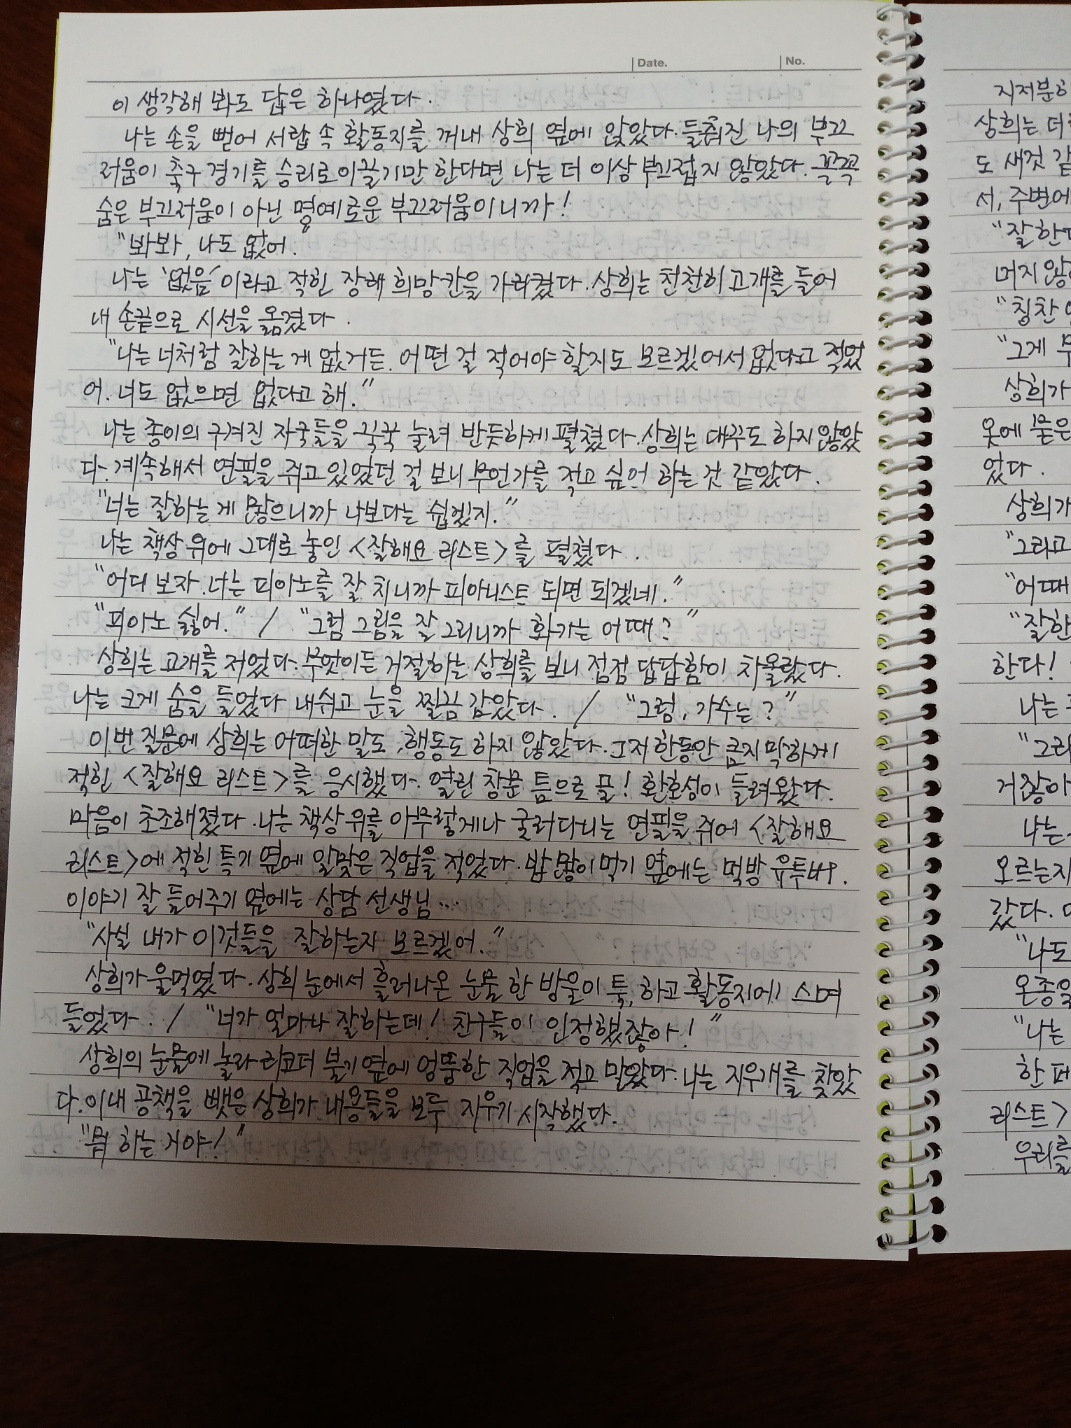 Date.
No.
이 생각해 봐도 답은 하나였다.
나는 손을 뻗어 서랍 속 활동지를 꺼내 상희 옆에 앉았다. 들춰진 나의 부끄
러움이 축구 경기를 승리로 이끌기만 한다면 나는 더 이상 부끄럽지 않았다. 꼭꼭
숨은 부끄러움이 아닌 명예로운 부끄러움이니까!
"봐봐, 나도 없어."
나는 '없음'이라고 적힌 장해 희망 칸을 가리켰다. 상희는 천천히 고개를 들어
내 손끝으로 시선을 옮겼다.
"나는 너처럼 잘하는 게 없거든. 어떤 걸 적어야 할지도 모르겠어서 없다고 적었
어. 너도 없으면 없다고 해."
나는 종이의 구겨진 자국들을 꾹꾹 눌려 반듯하게 펼쳤다. 상희는 대꾸도 하지 않았
다. 계속해서 연필을 쥐고 있었던 걸 보니 무언가를 적고 싶어 하는 것 같았다.
"너는 잘하는 게 많으니까 나보다는 쉽겠지."
나는 책상 위에 그대로 놓인 <잘해요 리스트>를 펼쳤다.
"어디 보자. 너는 피아노를 잘 치니까 피아니스트 되면 되겠네."
"피아노 싫어." / "그럼 그림을 잘 그리니까 화가는 어때?"
상희는 고개를 저었다. 무엇이든 거절하는 상희를 보니 점점 답답함이 차올랐다.
나는 크게 숨을 들었다 내쉬고 눈을 찔끔 감았다. / "그럼, 가수는?"
이번 질문에 상희는 어떠한 말도, 행동도 하지 않았다. 그저 한동안 큼지막하게
적힌 <잘해요 리스트>를 응시했다. 열린 창문 틈으로 골! 환호성이 들려왔다.
마음이 초조해졌다. 나는 책상 위를 아무렇게나 굴러다니는 연필을 쥐어 <잘해요
리스트>에 적힌 특기 옆에 알맞은 직업을 적었다. 밥 많이 먹기 옆에는 먹방 유투버.
이야기 잘 들어주기 옆에는 상담 선생님...
"사실 내가 이것들을 잘하는지 모르겠어."
상희가 울먹였다. 상희 눈에서 흘러나온 눈물 한 방울이 툭, 하고 활동지에 스며
들었다. / "너가 얼마나 잘하는데! 친구들이 인정했잖아!"
상희의 눈물에 놀라 리코더 불기 옆에 엉뚱한 직업을 적고 말았다. 나는 지우개를 찾았
다. 이내 공책을 뺏은 상희가 내용들을 모두 지우기 시작했다.
"뭐 하는 거야!"
지저분하
상희는 더
도 새것 같
서, 주변에
"잘한
머지않
"칭찬
"그게
상희가
옷에 묻은
었다.
상희가
"그리고
"어때
"잘한
한다!
나는
"그래
거잖아
나는
오르는지
갔다.
"나도
온종일
"나는
한 페
리스트>
우리를